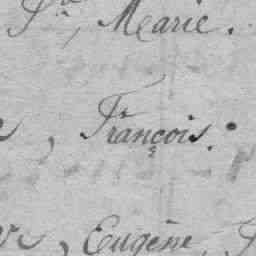 Sta, Marie.
, François.
, Eugène,